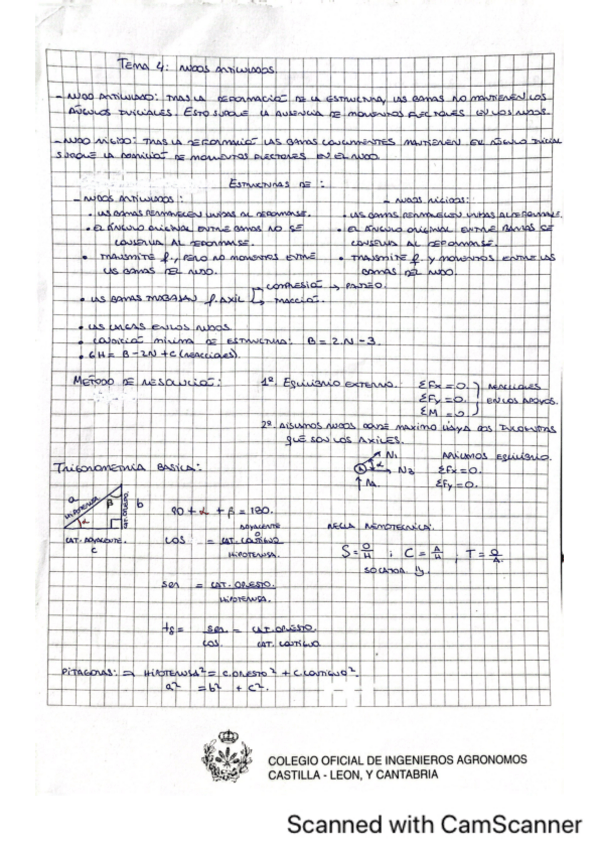 TEMA 4: NUDOS ARTICULADOS.
- NUDO ARTICULADO: TRAS LA DEFORMACIÓ DE LA ESTRUCTURA, LAS BARRAS NO MANTIENEN LOS
ÁNGULOS INICIALES. ESTO SUPONE LA AUSENCIA DE MOMENTOS FLECTORES EN LOS NUDOS.
- NUDO RIGIDO: TRAS LA DEFORMACIÓ LAS BARRAS CONCURRENTES MANTIENEN EL ÁNGULO INICIAL
SUPONE LA DE MOMENTOS FLECTORES EN EL NUDO
ESTRUCTURAS DE :
- NUDOS ARTICULADOS :
• LAS BARRAS PERMANECEN UNIDAS AL DEFORMARSE.
• EL ÁNGULO ORIGINAL ENTRE BARRAS NO SE
CONSERVA AL DEFORMARSE.
• TRANSMITE f., PERO NO MOMENTOS ENTRE
LAS BARRAS DEL NUDO.
- NUDOS RIGIDOS:
• LAS BARRAS PERMANECEN UNIDAS AL DEFORMARSE.
• EL ÁNGULO ORIGINAL ENTRE BARRAS SE
CONSERVA AL DEFORMARSE.
• TRANSMITE f. Y MOMENTOS ENTRE LAS
BARRAS DEL NUDO.
• LAS BARRAS TRABAJAN f. AXIL
COMPRESIÓ → PANDEO.
TRACCIÓ.
• LAS CARGAS EN LOS NUDOS
• CONDICIÓ MÍNIMA DE ESTRUCTURA: B = 2.N - 3.
• GH = B - 2N + C (REACCIONES).
METODO DE RESOLUCIÓ:
1º. EQUILIBRIO EXTERNO.
ΣFx = 0.
ΣFy = 0.
ΣM = 0.
REACCIONES
EN LOS APOYOS.
2º. AISLAMOS NUDOS DONDE MAXIMO HAYA DOS INCOGNITAS
QUE SON LOS AXILES.
N1
α
N2
APLICAMOS EQUILIBRIO.
ΣFx = 0.
ΣFy = 0.
TRIGONOMETRIA BASICA:
a
HIPOTENUSA
β
CAT. OPUESTO.
b
α
CAT. ADYACENTE.
c
90 + α + β = 180.
COS = ADYACENTE O CAT. CONTIGUO / HIPOTENUSA.
REGLA NEMOTECNICA:
S = O/H ; C = A/H ; T = O/A
SOCATOA
sen = CAT. OPUESTO. / HIPOTENUSA.
tg = sen / cos. = CAT. OPUESTO. / CAT. CONTIGUO.
PITAGORAS: ⇒ HIPOTENUSA² = C. OPUESTO² + C. CONTIGUO².
a² = b² + c².
COLEGIO OFICIAL DE INGENIEROS AGRONOMOS
CASTILLA - LEON, Y CANTABRIA
Scanned with CamScanner